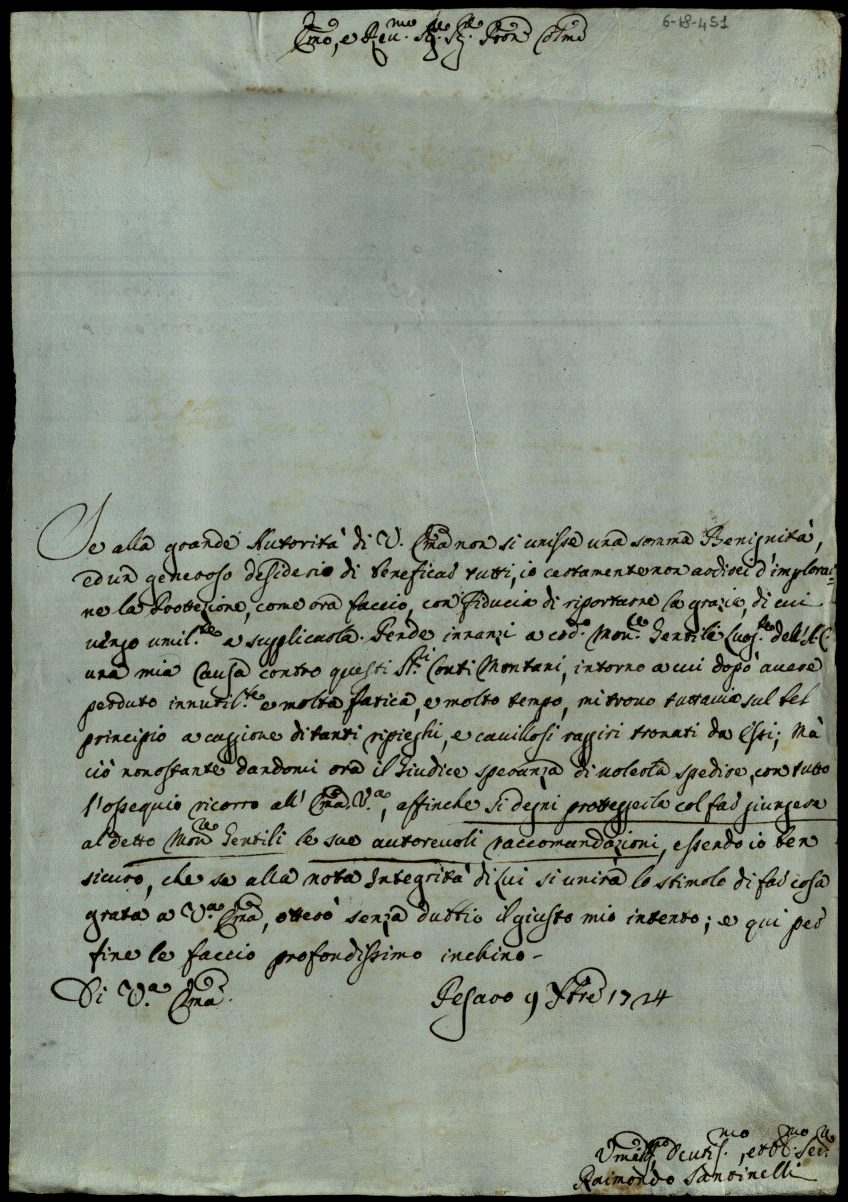 Emo, e Reu.mo Sig.re Sig.re Pron Colmo
6-18-451
Se alla grande Autorità di V. Emã non si unisse una somma Benignità,
ed un generoso desiderio di beneficar tutti, io certamente non ardirei d'implorar-
ne la Protezione, come ora faccio, con fiducia di riportarne la grazia, di cui
vengo umil.te a supplicarla. Pende innanzi a cod.o Mon.re Gentili Luog.te dell'A.C.
una mia Causa contro questi SS.ri Conti Montani, intorno a cui dopo avere
perduto innutil.te e molta fatica, e molto tempo, mi trovo tuttavia sul bel
principio a caggione di tanti ripieghi, e cavillosi raggiri trovati da Essi; Mà
ciò nonostante dandomi ora il Giudice speranza di volerla spedire, con tutto
l'ossequio ricorro all' Emã V.a, affinche si degni proteggerla col far giungere
al detto Mon.re Gentili le sue autorevoli raccomandazioni, essendo io ben
sicuro, che se alla nota Integrità di Lui si unirà lo stimolo di far cosa
grata a V.a Emã, otterò senza dubbio il giusto mio intento; e qui per
fine le faccio profondissimo inchino-
Di V.a Emã.
Pesaro 9 Xbre 1724
Vmilis.mo Deuts.mo, et Obb.mo Ser.re
Raimondo Santinelli